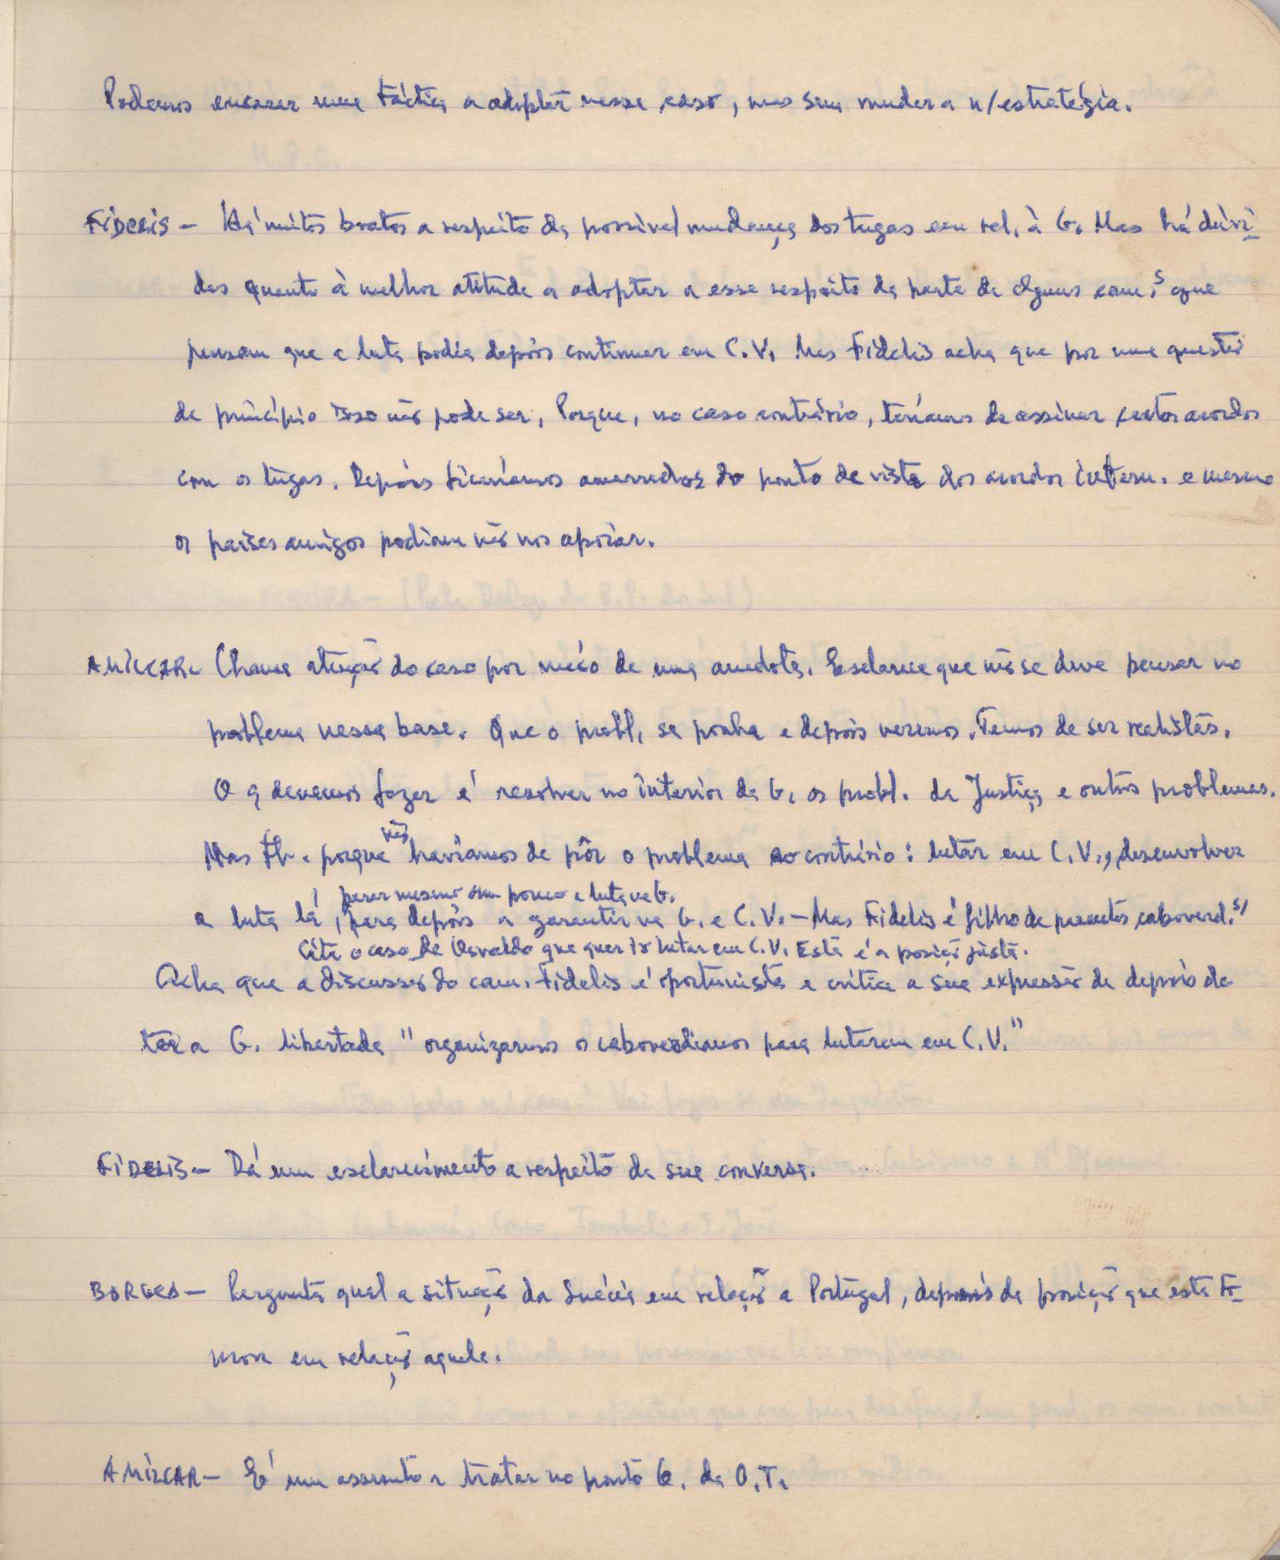 Podemos encarar uma táctica a adoptar nesse caso, mas sem mudar a n/estratégia.
FIDELIS – Há muitos boatos a respeito da possível mudança dos tugas em rel. à G. Mas há dúvi-
das quanto à melhor atitude a adoptar a esse respeito da parte de alguns cam.s que
pensam que a luta podia depois continuar em C.V. Mas Fidelis acha que por uma questão
de princípio isso não pode ser. Porque, no caso contrário, teríamos de assinar certos acordos
com os tugas. Depois ficaríamos amarrados do ponto de vista dos acordos intern. e mesmo
os países amigos podiam não nos apoiar.
AMÍLCAR – Chama atenção do caso por meio de uma anedota. Esclarece que não se deve pensar no
problema nessa base. Que o probl. se ponha e depois veremos. Temos de ser realistas.
O q devemos fazer é resolver no interior da G. os probl. da Justiça e outros problemas.
Mas porque não havíamos de pôr o problema ao contrário: lutar em C.V., desenvolver
a luta lá, parar mesmo um pouco a luta na G. para depois a garantir na G. e C.V. – Mas Fidelis é filho de parentes caboverd.s/
Cita o caso de Osvaldo que quer ir lutar em C.V. Esta é a posição justa.
Acha que a discussão do cam. Fidelis é oportunista e critica a sua expressão de depois de
ter a G. libertada "organizarmos os caboverdianos para lutarem em C.V."
FIDELIS – Dá um esclarecimento a respeito da sua conversa.
BORGES – Pergunta qual a situação da Suécia em relação a Portugal, depois da posição que esta to-
mou em relação aquele.
AMÍLCAR – É um assunto a tratar no ponto 6. da O.T.